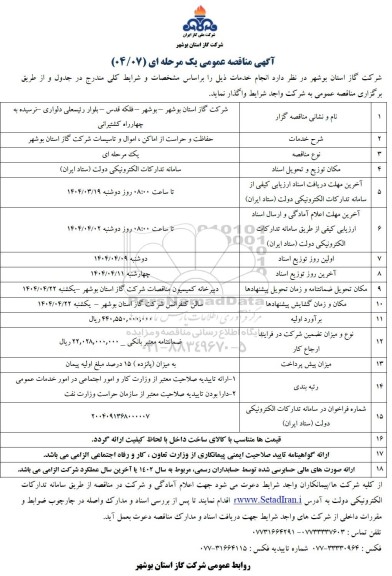 شرکت ملی گاز ایران
شرکت گاز استان بوشهر
آگهی مناقصه عمومی یک مرحله ای (۰۴/۰۷)
شرکت گاز استان بوشهر در نظر دارد انجام خدمات ذیل را براساس مشخصات و شرایط کلی مندرج در جدول و از طریق
برگزاری مناقصه عمومی به شرکت واجد شرایط واگذار نماید.
۱ نام و نشانی مناقصه گزار شرکت گاز استان بوشهر – بوشهر – فلکه قدس – بلوار رئیسعلی دلواری –نرسیده به
چهارراه کشتیرانی
۲ شرح خدمات حفاظت و حراست از اماکن ، اموال و تاسیسات شرکت گاز استان بوشهر
۳ نوع مناقصه یک مرحله ای
۴ مکان توزیع و تحویل اسناد سامانه تدارکات الکترونیکی دولت (ستاد ایران)
۵ آخرین مهلت دریافت اسناد ارزیابی کیفی از
سامانه تدارکات الکترونیکی دولت (ستاد ایران) تا ساعت ۰۸:۰۰ روز دوشنبه ۱۴۰۴/۰۳/۱۹
۶ آخرین مهلت اعلام آمادگی و ارسال اسناد
ارزیابی کیفی از طریق سامانه تدارکات
الکترونیکی دولت (ستاد ایران) تا ساعت ۰۸:۰۰ روز دوشنبه ۱۴۰۴/۰۴/۰۲
۷ اولین روز توزیع اسناد دوشنبه ۱۴۰۴/۰۴/۰۹
۸ آخرین روز توزیع اسناد چهارشنبه ۱۴۰۴/۰۴/۱۱
۹ مکان تحویل ضمانتنامه و زمان تحویل پیشنهادها دبیرخانه کمیسیون مناقصات شرکت گاز استان بوشهر –یکشنبه ۱۴۰۴/۰۴/۲۲
۱۰ مکان و زمان گشایش پیشنهادها سالن کنفرانس شرکت گاز استان بوشهر – یکشنبه ۱۴۰۴/۰۴/۲۲
۱۱ برآورد اولیه ۴۴۰,۵۵۰,۰۰۰,۰۰۰ ریال
۱۲ نوع و میزان تضمین شرکت در فرایند
ارجاع کار ضمانتنامه معتبر بانکی _ ۲۲,۰۲۸,۰۰۰,۰۰۰ ریال
۱۳ میزان پیش پرداخت به میزان (پانزده) ۱۵ درصد مبلغ اولیه پیمان
۱۴ رتبه بندی ۱-ارائه تاییدیه صلاحیت معتبر از وزارت کار و امور اجتماعی در امور خدمات عمومی
۲-دارا بودن تاییدیه صلاحیت معتبر از سازمان حراست وزارت نفت
۱۵ شماره فراخوان در سامانه تدارکات الکترونیکی
دولت (ستاد ایران) ۲۰۰۴۰۹۱۳۶۸۰۰۰۰۰۷
۱۶ قیمت ها متناسب با کالای ساخت داخل با لحاظ کیفیت ارائه گردد.
۱۷ ارائه گواهینامه تایید صلاحیت ایمنی پیمانکاری از وزارت تعاون ، کار و رفاه اجتماعی الزامی می باشد.
۱۸ ارائه صورت های مالی حسابرسی شده توسط حسابداران رسمی، مربوط به سال ۱۴۰۲ یا آخرین سال عملکرد شرکت الزامی می باشد.
از کلیه شرکت ها/پیمانکاران واجد شرایط دعوت می شود جهت اعلام آمادگی و شرکت در مناقصه از طریق سامانه تدارکات
الکترونیکی دولت به آدرس www.SetadIran.ir اقدام نمایند تا پس از بررسی اسناد و مدارک واصله در چارچوب ضوابط و
مقررات داخلی از شرکت های واجد شرایط جهت دریافت اسناد و مدارک مناقصه دعوت بعمل آید.
روابط عمومی شرکت گاز استان بوشهر